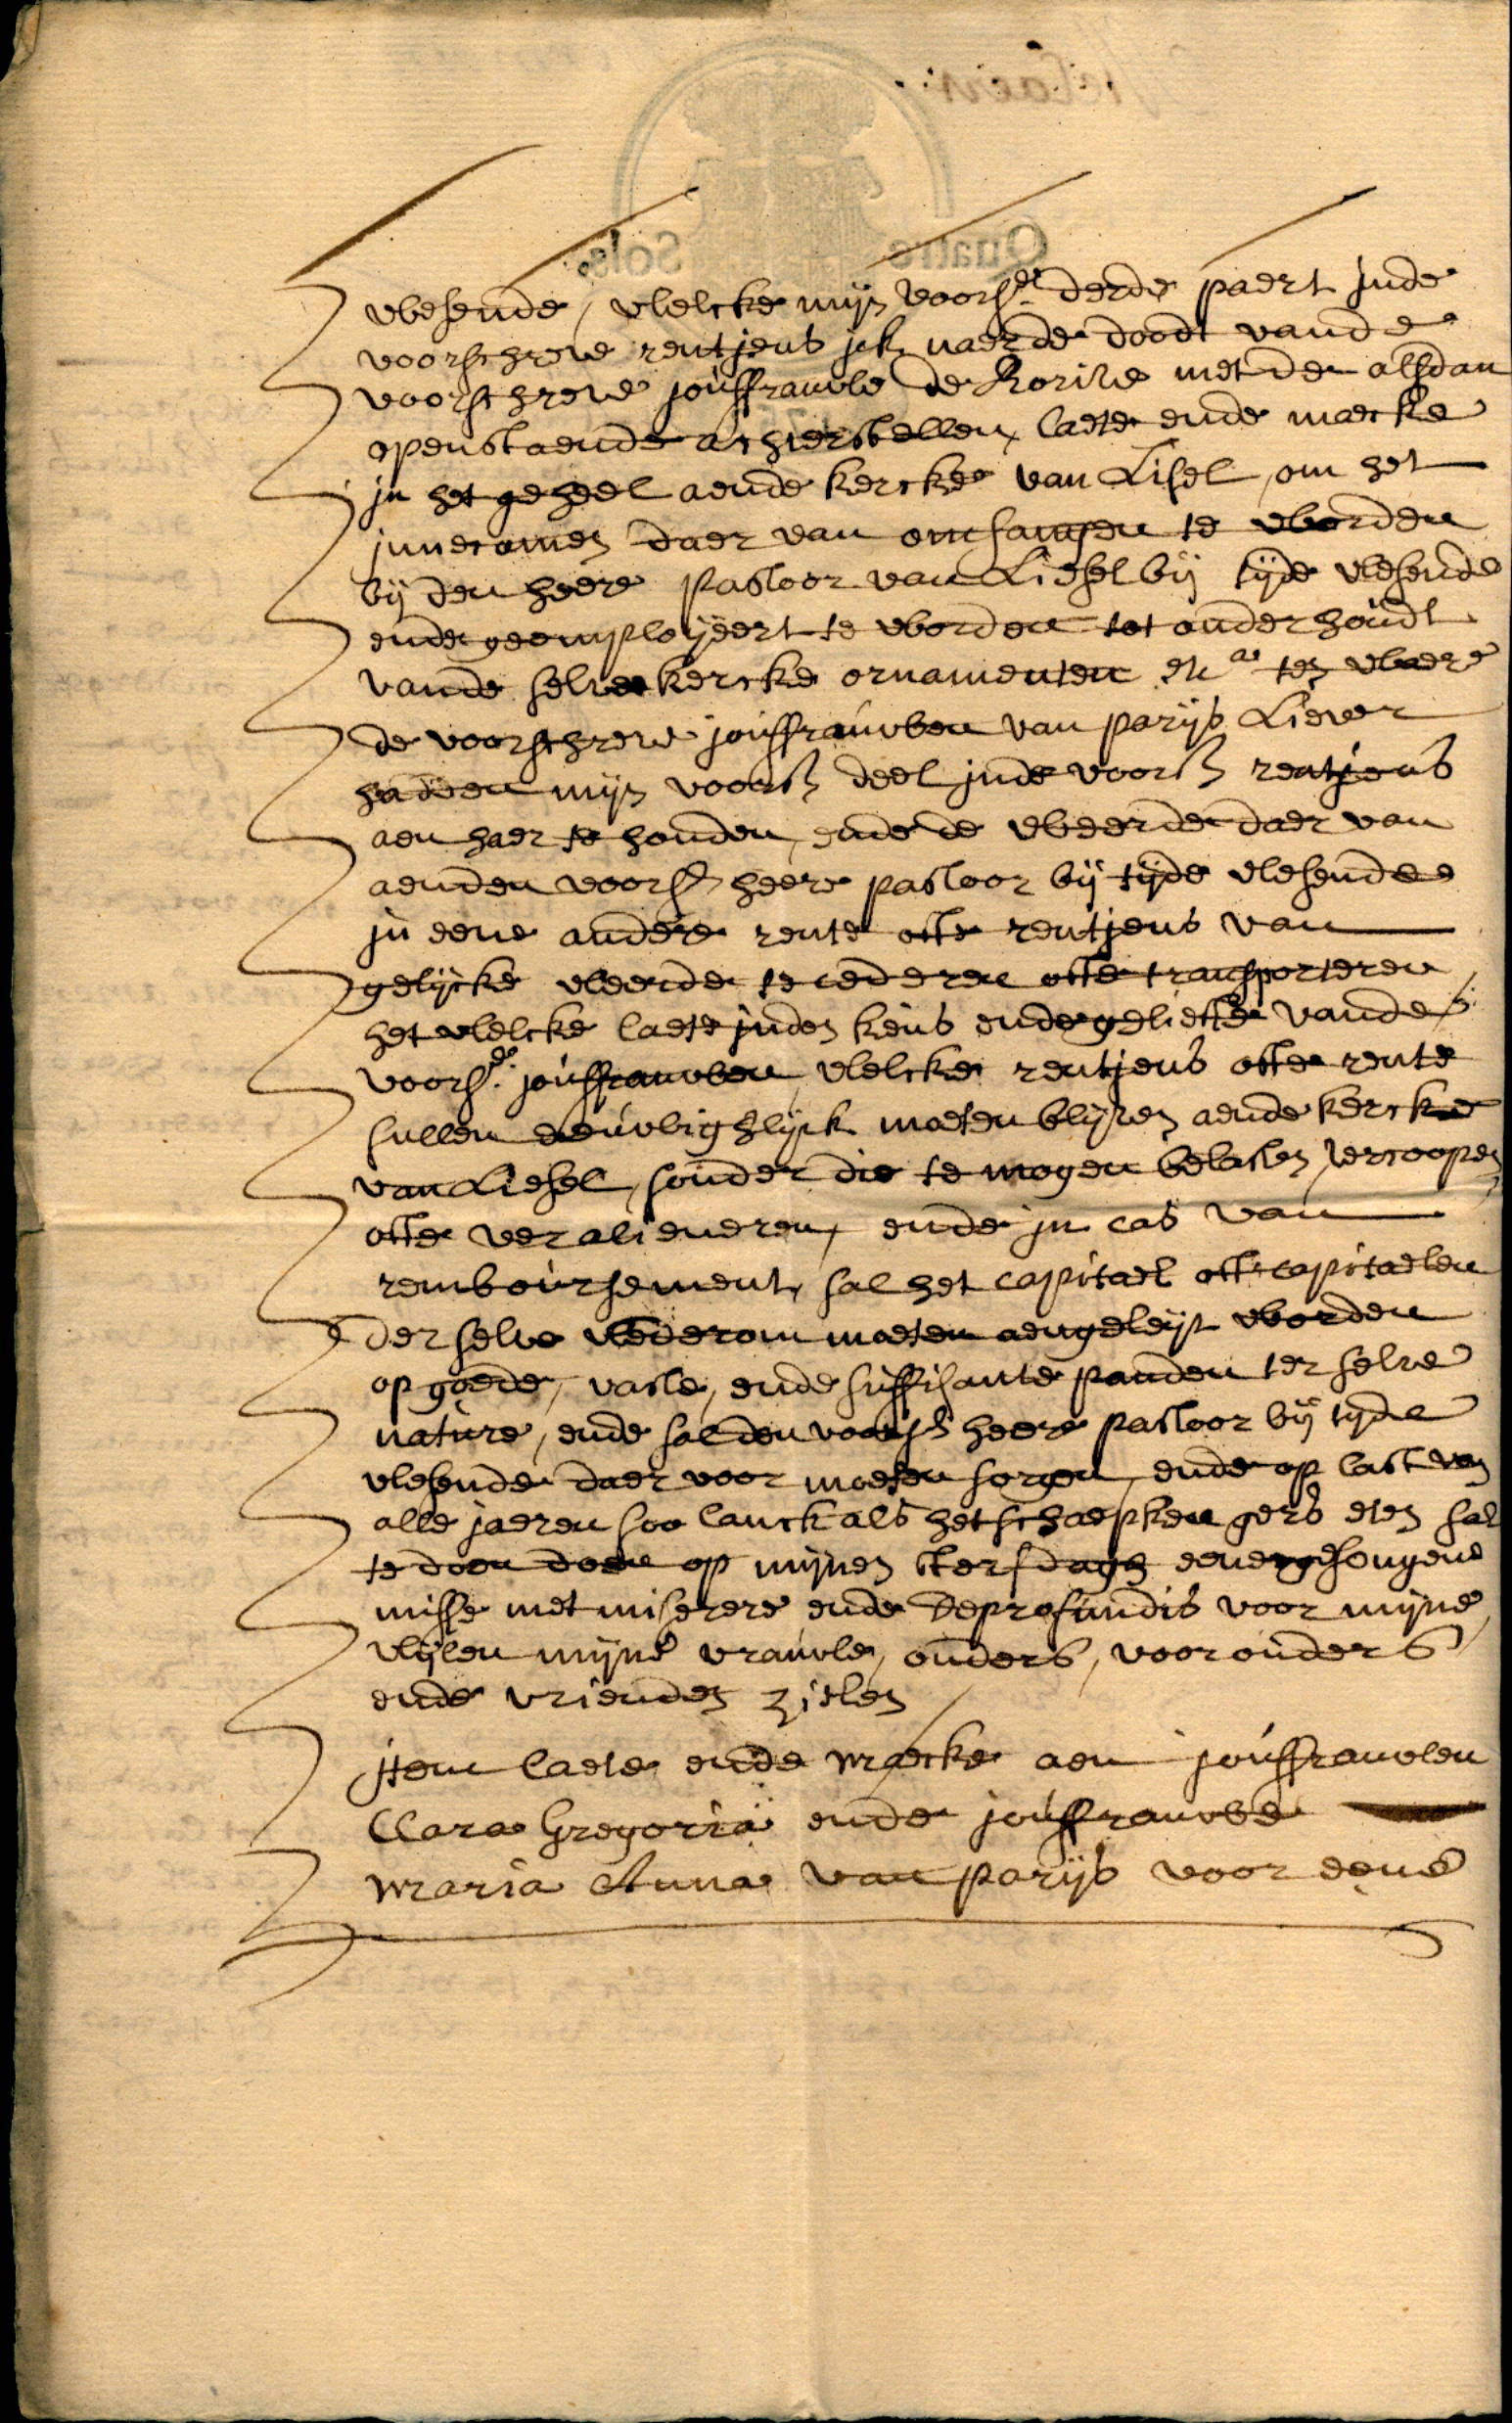 Quatre Sols
wesende, welcke mijn voors.de derde paert inde
voorschreve rentjens ick naer de doodt vande
voorschreve jouffrauwe de Rorive met de alsdan
openstaende achterstellen, laete ende maecke
in het geheel aende kercke van Lisel, om het
innecomen daer van ontfangen te worden
bij den heere pastoor van Liesel bij tijde wesende
ende geemploijeert te worden tot onderhoudt
vande selve kercke ornamenten etca ten waere
de voorschreve jouffrauwen van parijs liever
hadden mijn voors deel inde voors rentjens
aen haer te houden, ende de weerde daer van
aenden voors heere pastoor bij tijde wesende
in eene andere rente ofte rentjens van
gelijcke weerde te cederen ofte transporteren
het welcke laete inden keus ende geliefte vande
voors.de jouffrauwen, welcke rentjens ofte rente
sullen eeuwighlijck moeten blijven aende kercke
van Liesel, sonder die te mogen belasten, vercoopen
ofte veralieneren, ende in cas van
remboursement, sal het capitael ofte capitaelen
der selve wederom moeten aengeleijt worden
op goede, vaste, ende suffisante panden ter selve
nature, ende sal den voors heere pastoor bij tijde
wesende daer voor moeten sorgen, ende op last van
alle jaeren soo lanck als het schaepken gers eten sal
te doen doen op mijnen sterfdagh eene gesongene
misse met miserere ende Deprofundis voor mijne,
wijlen mijne vrauwe, ouders, voorouders
ende vrienden zielen
item laete ende maecke aen jouffrauwen
Clara Gregoria ende jouffrauwe
Maria Anna van parijs voor eene